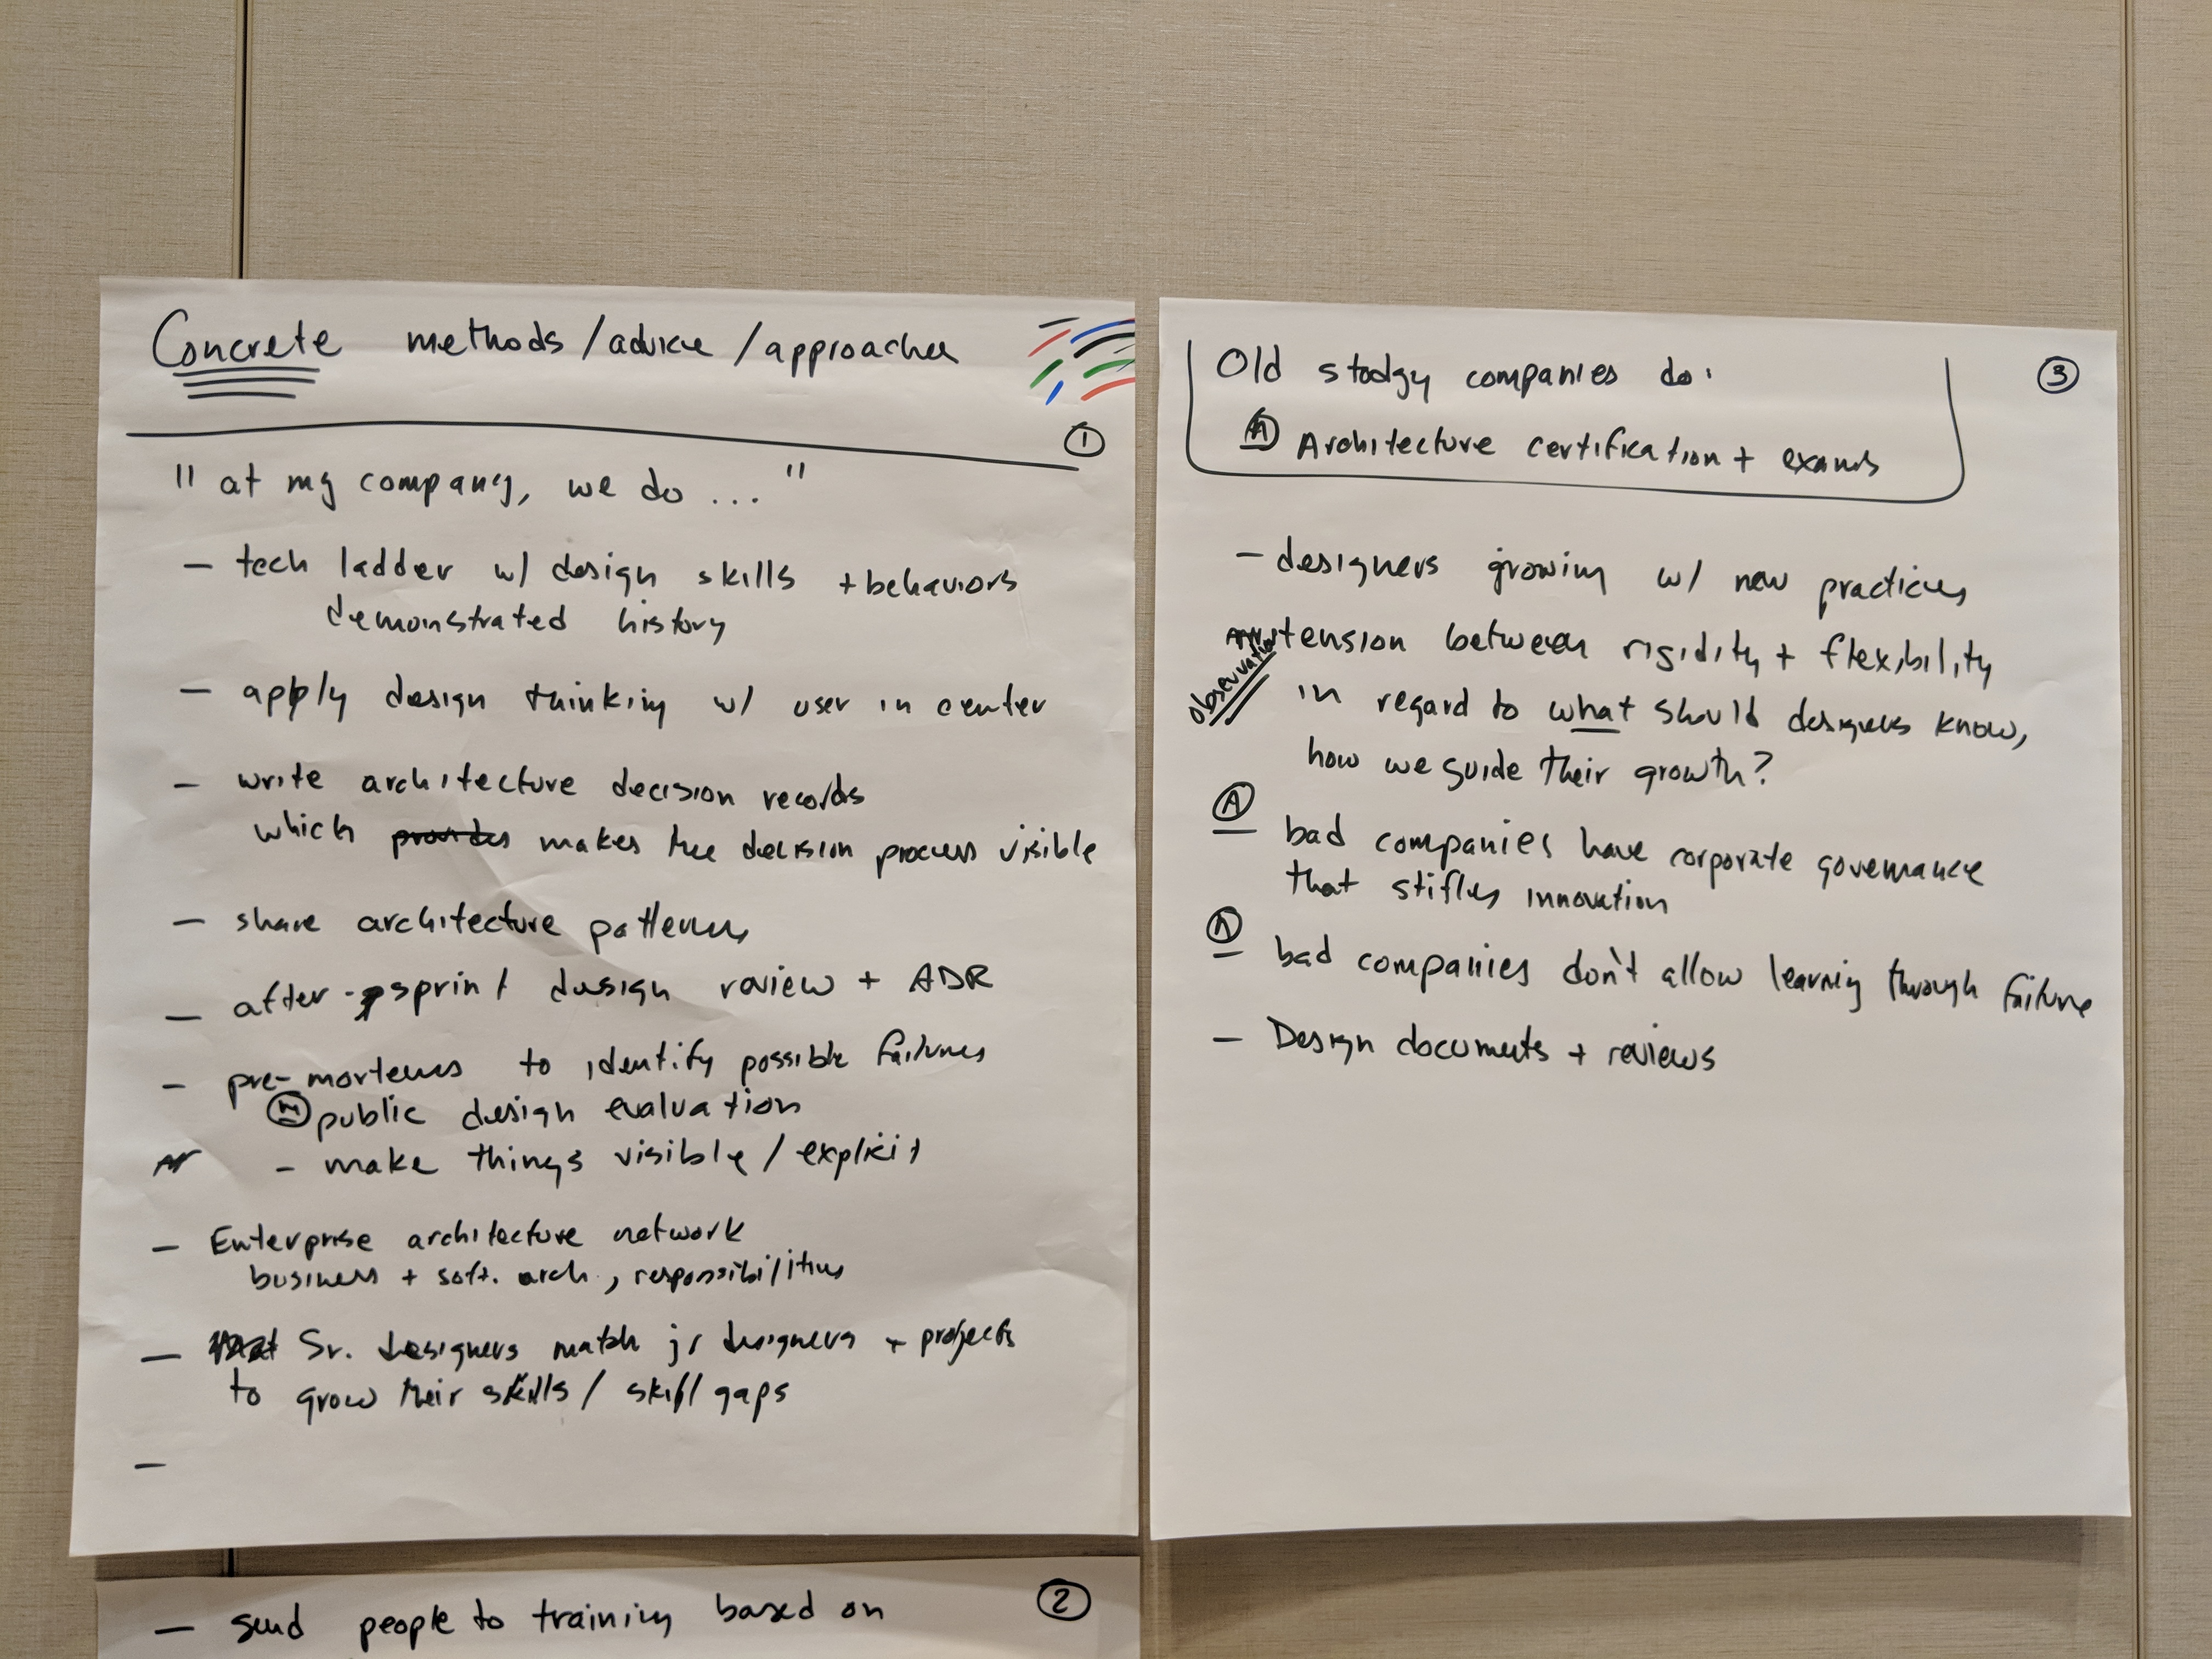 Concrete methods / advice / approaches
①
" at my company, we do ... "
– tech ladder w/ design skills + behaviors
demonstrated history
– apply design thinking w/ user in center
– write architecture decision records
which provides makes the decision process visible
– share architecture patterns
– after-sprint design review + ADR
– pre-mortems to identify possible failures
public design evaluation
– make things visible / explicit
– Enterprise architecture network
business + soft. arch., responsibilities
– Sr. designers match jr designers + projects
to grow their skills / skill gaps
–
②
– send people to training based on
③
Old stodgy companies do:
Ⓐ Architecture certification + exams
– designers growing w/ new practices
observation
tension between rigidity + flexibility
in regard to what should designers know,
how we guide their growth?
Ⓐ bad companies have corporate governance
that stifles innovation
Ⓐ bad companies don't allow learning through failure
– Design documents + reviews